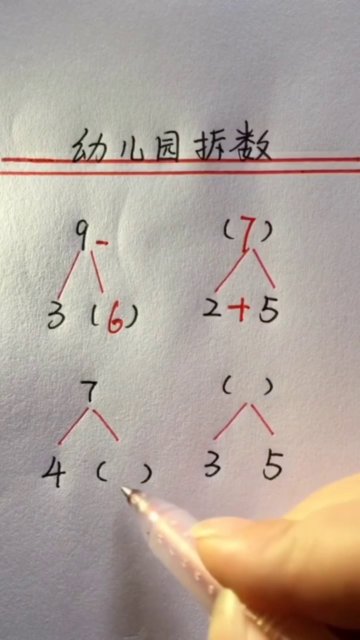 幼儿园拆数
9 - (7)
3 (6) 2 + 5
7 ( )
4 ( ) 3 5